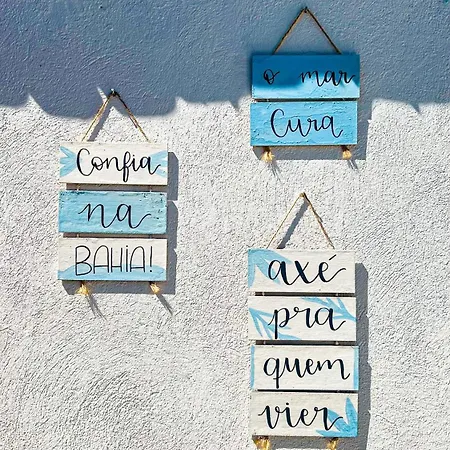 Confia
na
BAHIA!
o mar
Cura
axé
pra
quem
vier